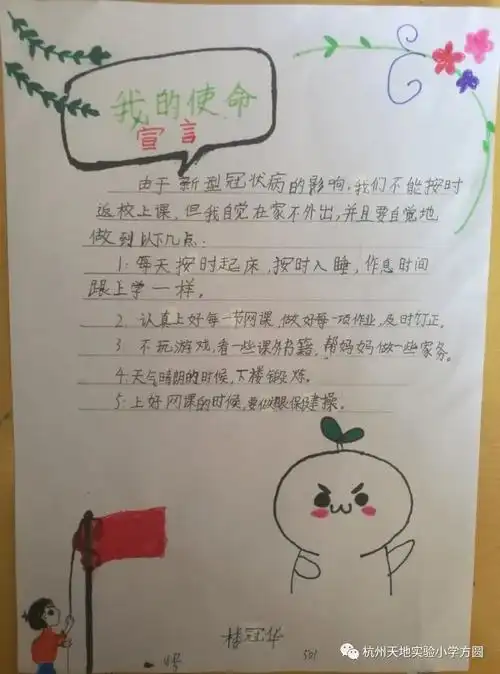 我的使命
宣言
由于新型冠状病的影响，我们不能按时
返校上课，但我自觉在家不外出，并且要自觉地
做到以下几点：
1：每天按时起床，按时入睡，作息时间
跟上学一样。
2、认真上好每一节网课，做好每一项作业，及时订正。
3 不玩游戏，看一些课外书籍，帮妈妈做一些家务。
4：天气晴朗的时候，下楼锻炼。
5：上好网课的时候，要做眼保健操。
楼冠华
501
杭州天地实验小学方圆